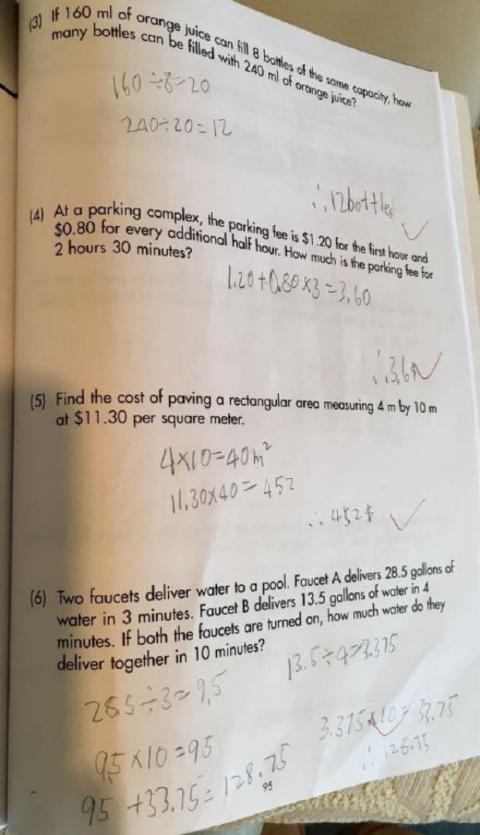 (3) If 160 ml of orange juice can fill 8 bottles of the same capacity, how
many bottles can be filled with 240 ml of orange juice?
160÷8=20
240÷20=12
∴12bottles
(4) At a parking complex, the parking fee is $1.20 for the first hour and
$0.80 for every additional half hour. How much is the parking fee for
2 hours 30 minutes?
1.20+0.80×3=3.60
(5) Find the cost of paving a rectangular area measuring 4 m by 10 m
at $11.30 per square meter.
4×10=40m²
11.30×40=452
∴452$
(6) Two faucets deliver water to a pool. Faucet A delivers 28.5 gallons of
water in 3 minutes. Faucet B delivers 13.5 gallons of water in 4
minutes. If both the faucets are turned on, how much water do they
deliver together in 10 minutes?
13.5÷4=3.375
28.5÷3=9.5
3.375×10=33.75
9.5×10=95
∴128.75
95+33.75=128.75
95